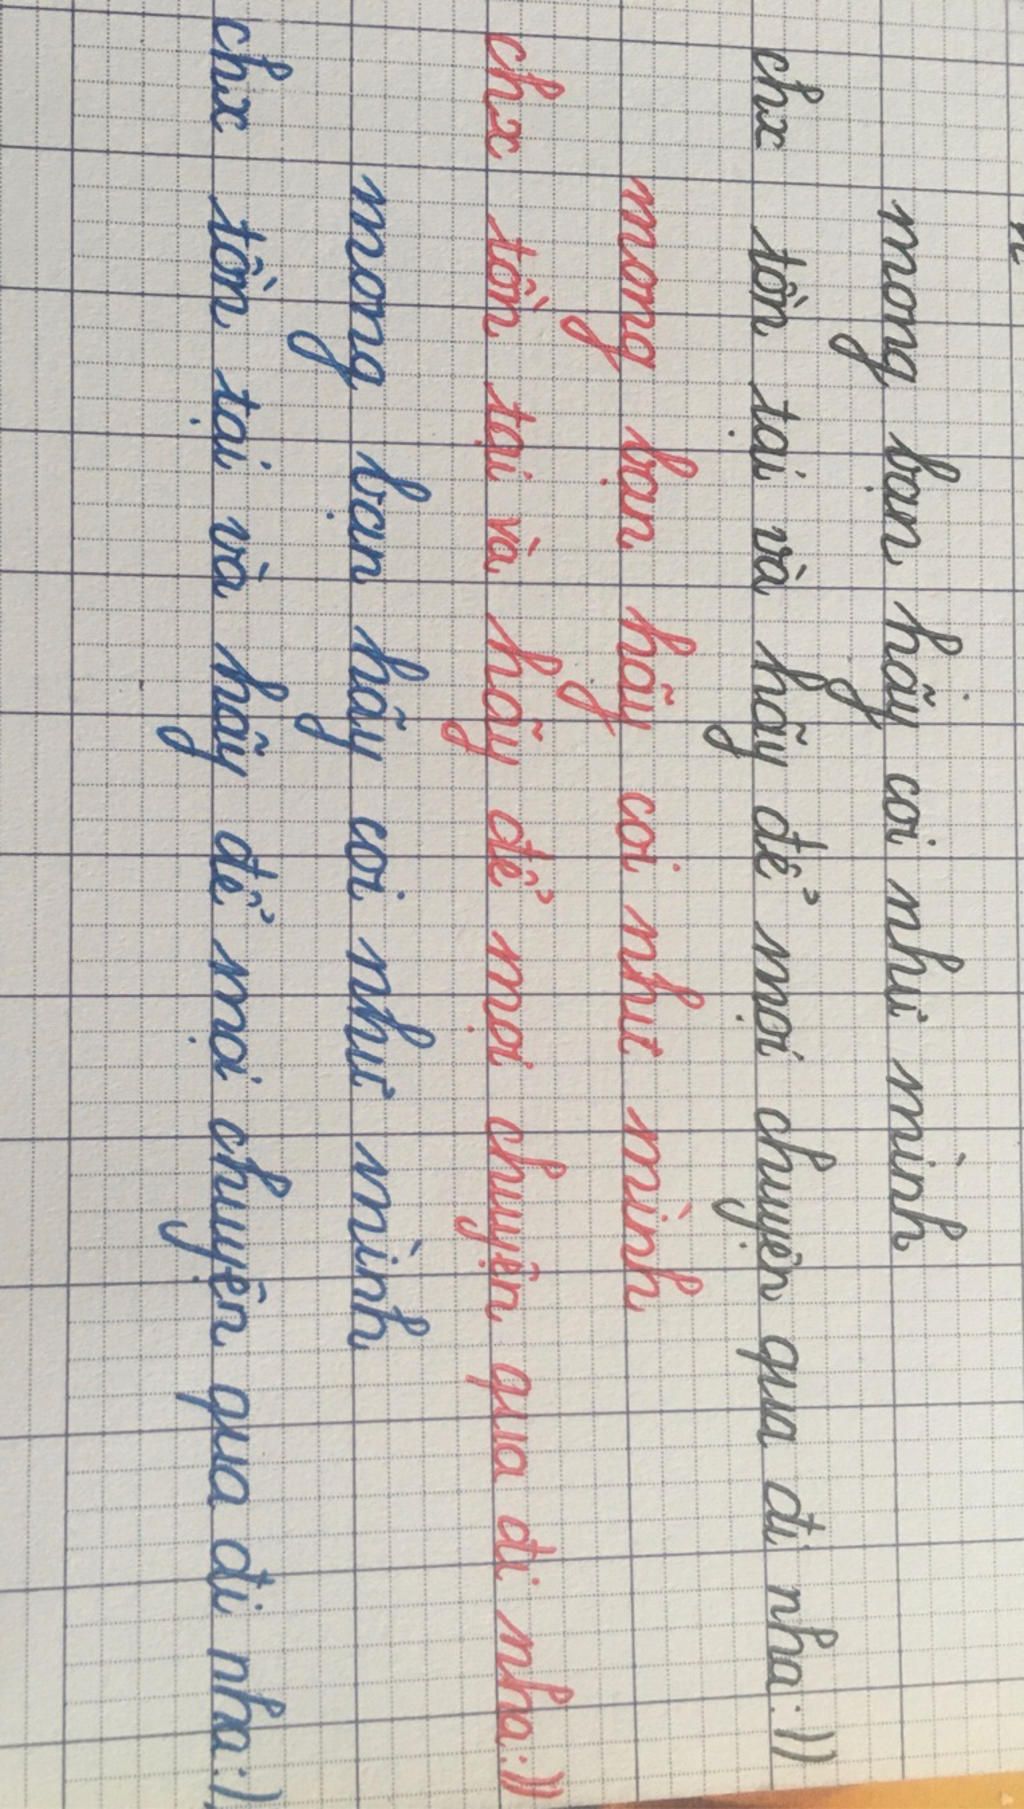 mong bạn hãy coi như mình
chx tồn tại và hãy để mọi chuyện qua đi nha:))
mong bạn hãy coi như mình
chx tồn tại và hãy để mọi chuyện qua đi nha:))
mong bạn hãy coi như mình
chx tồn tại và hãy để mọi chuyện qua đi nha:)